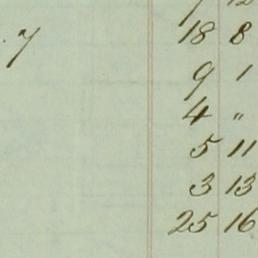 18 8
. 7
9 1
4 "
5 11
3 13
25 16